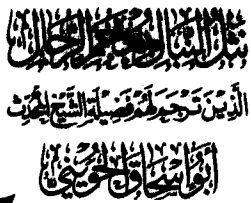 نثل النبال بمعجم الرجال
الذين ترجم لهم فضيلة الشيخ المحدث
أبو إسحاق الحويني